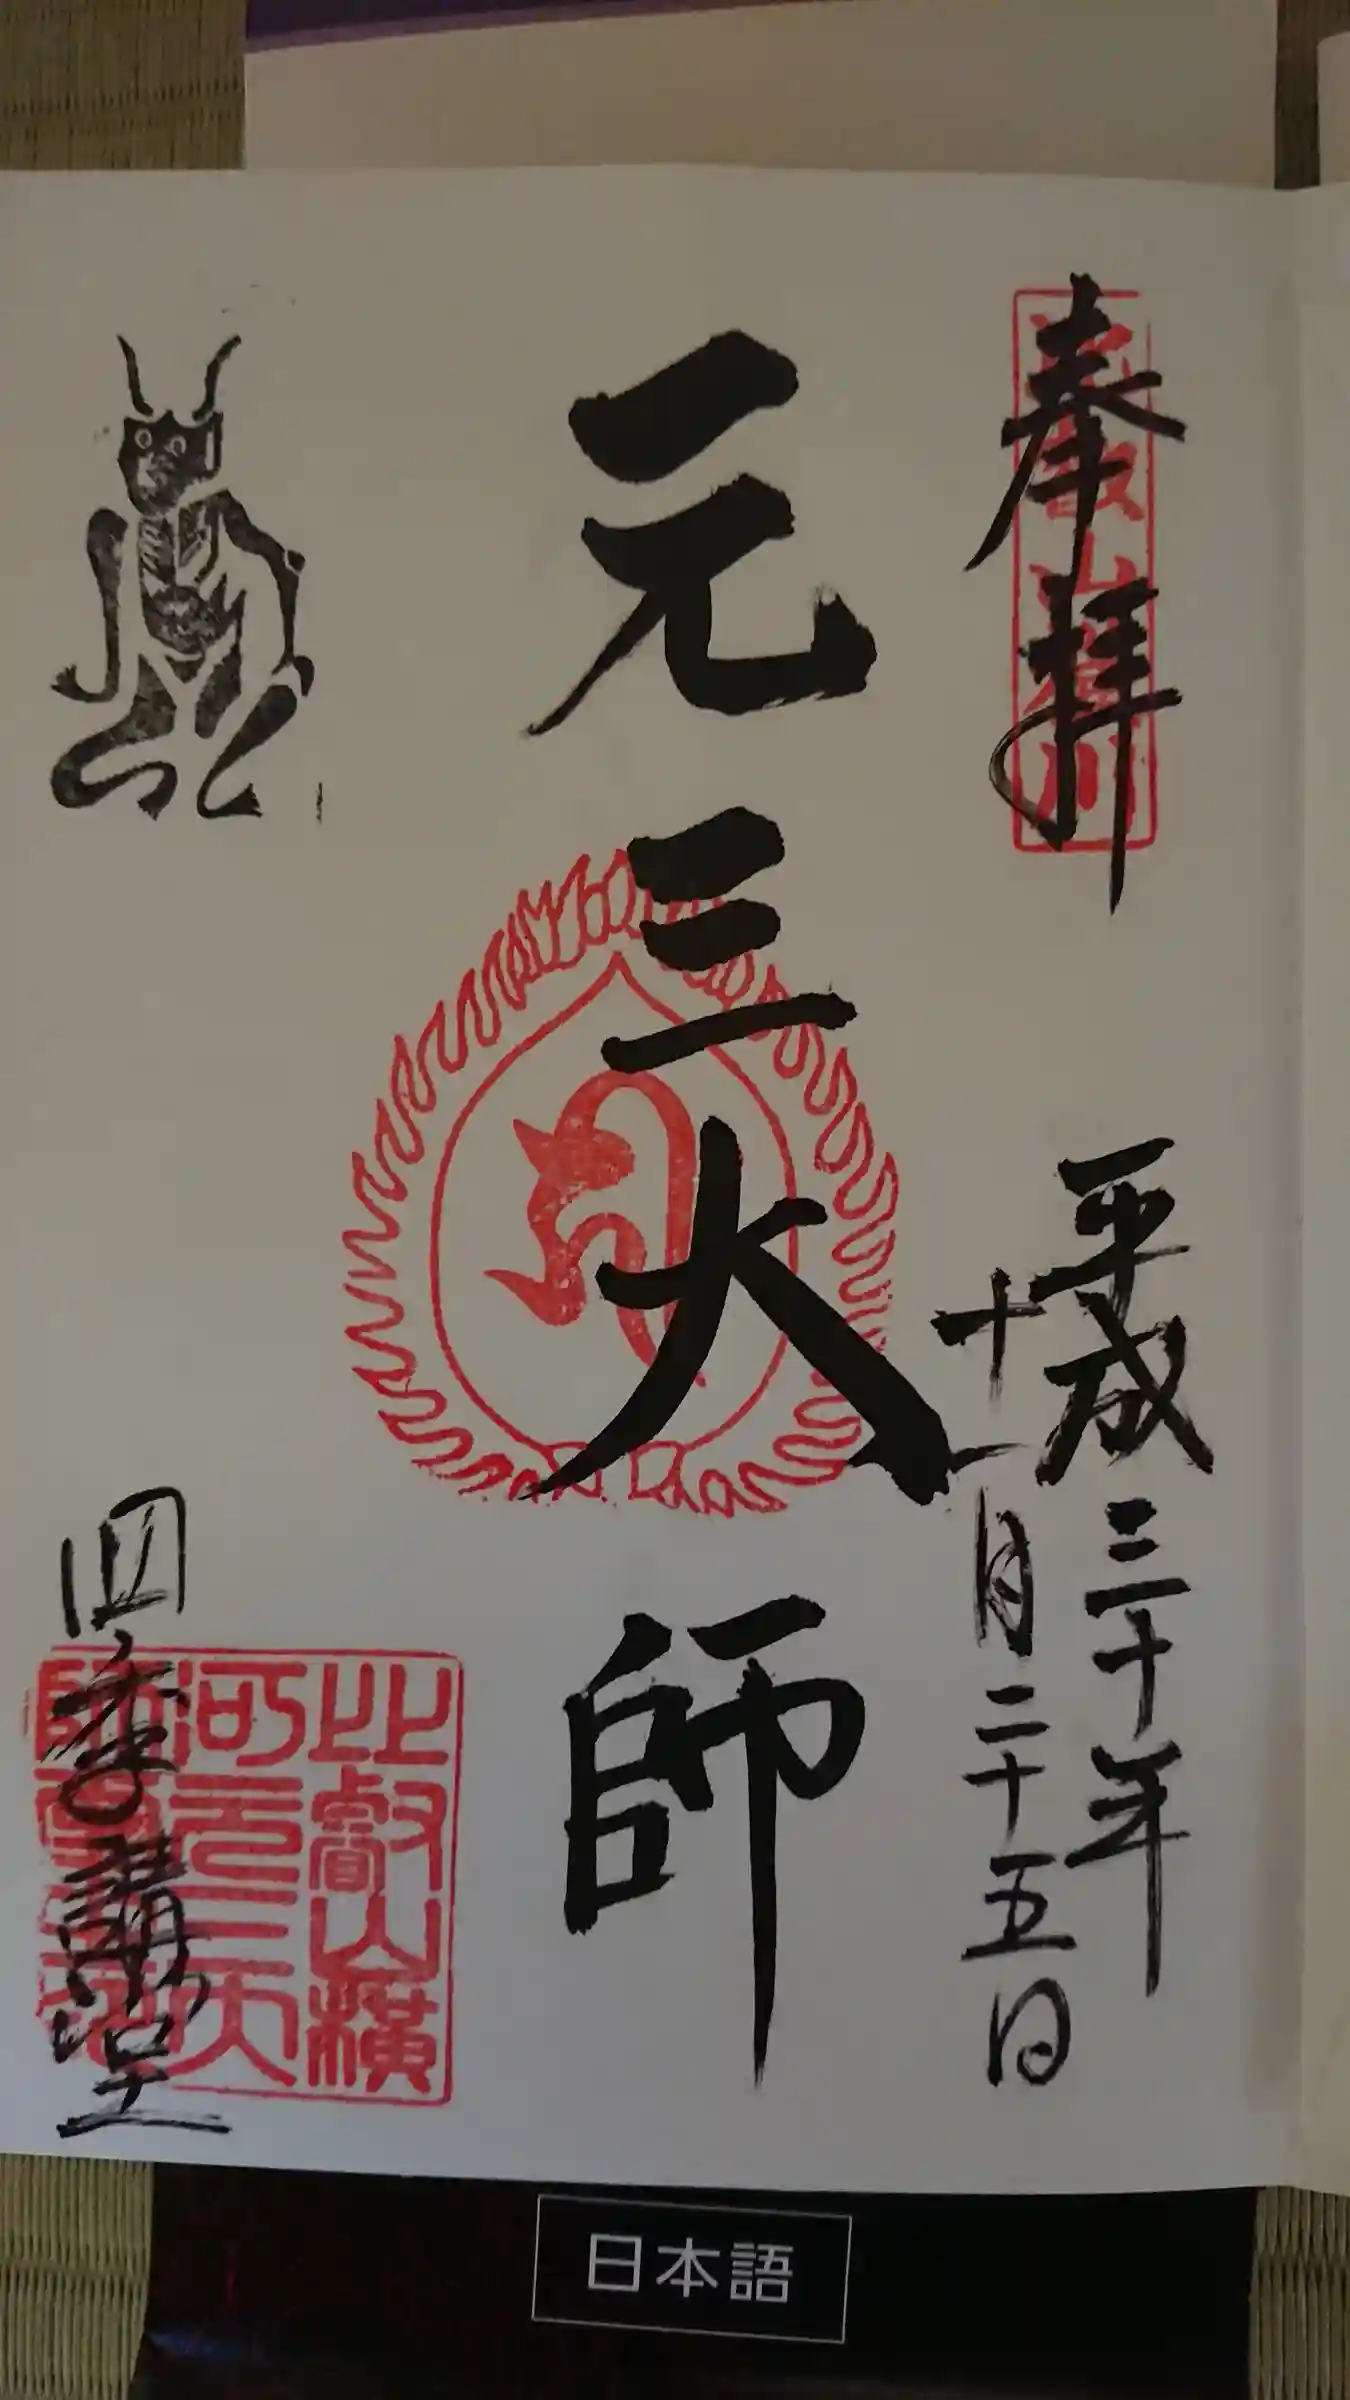 奉拝
平成三十年
十一月二十五日
元三大師
四季講堂
比叡山横
川元三大
師
日本語